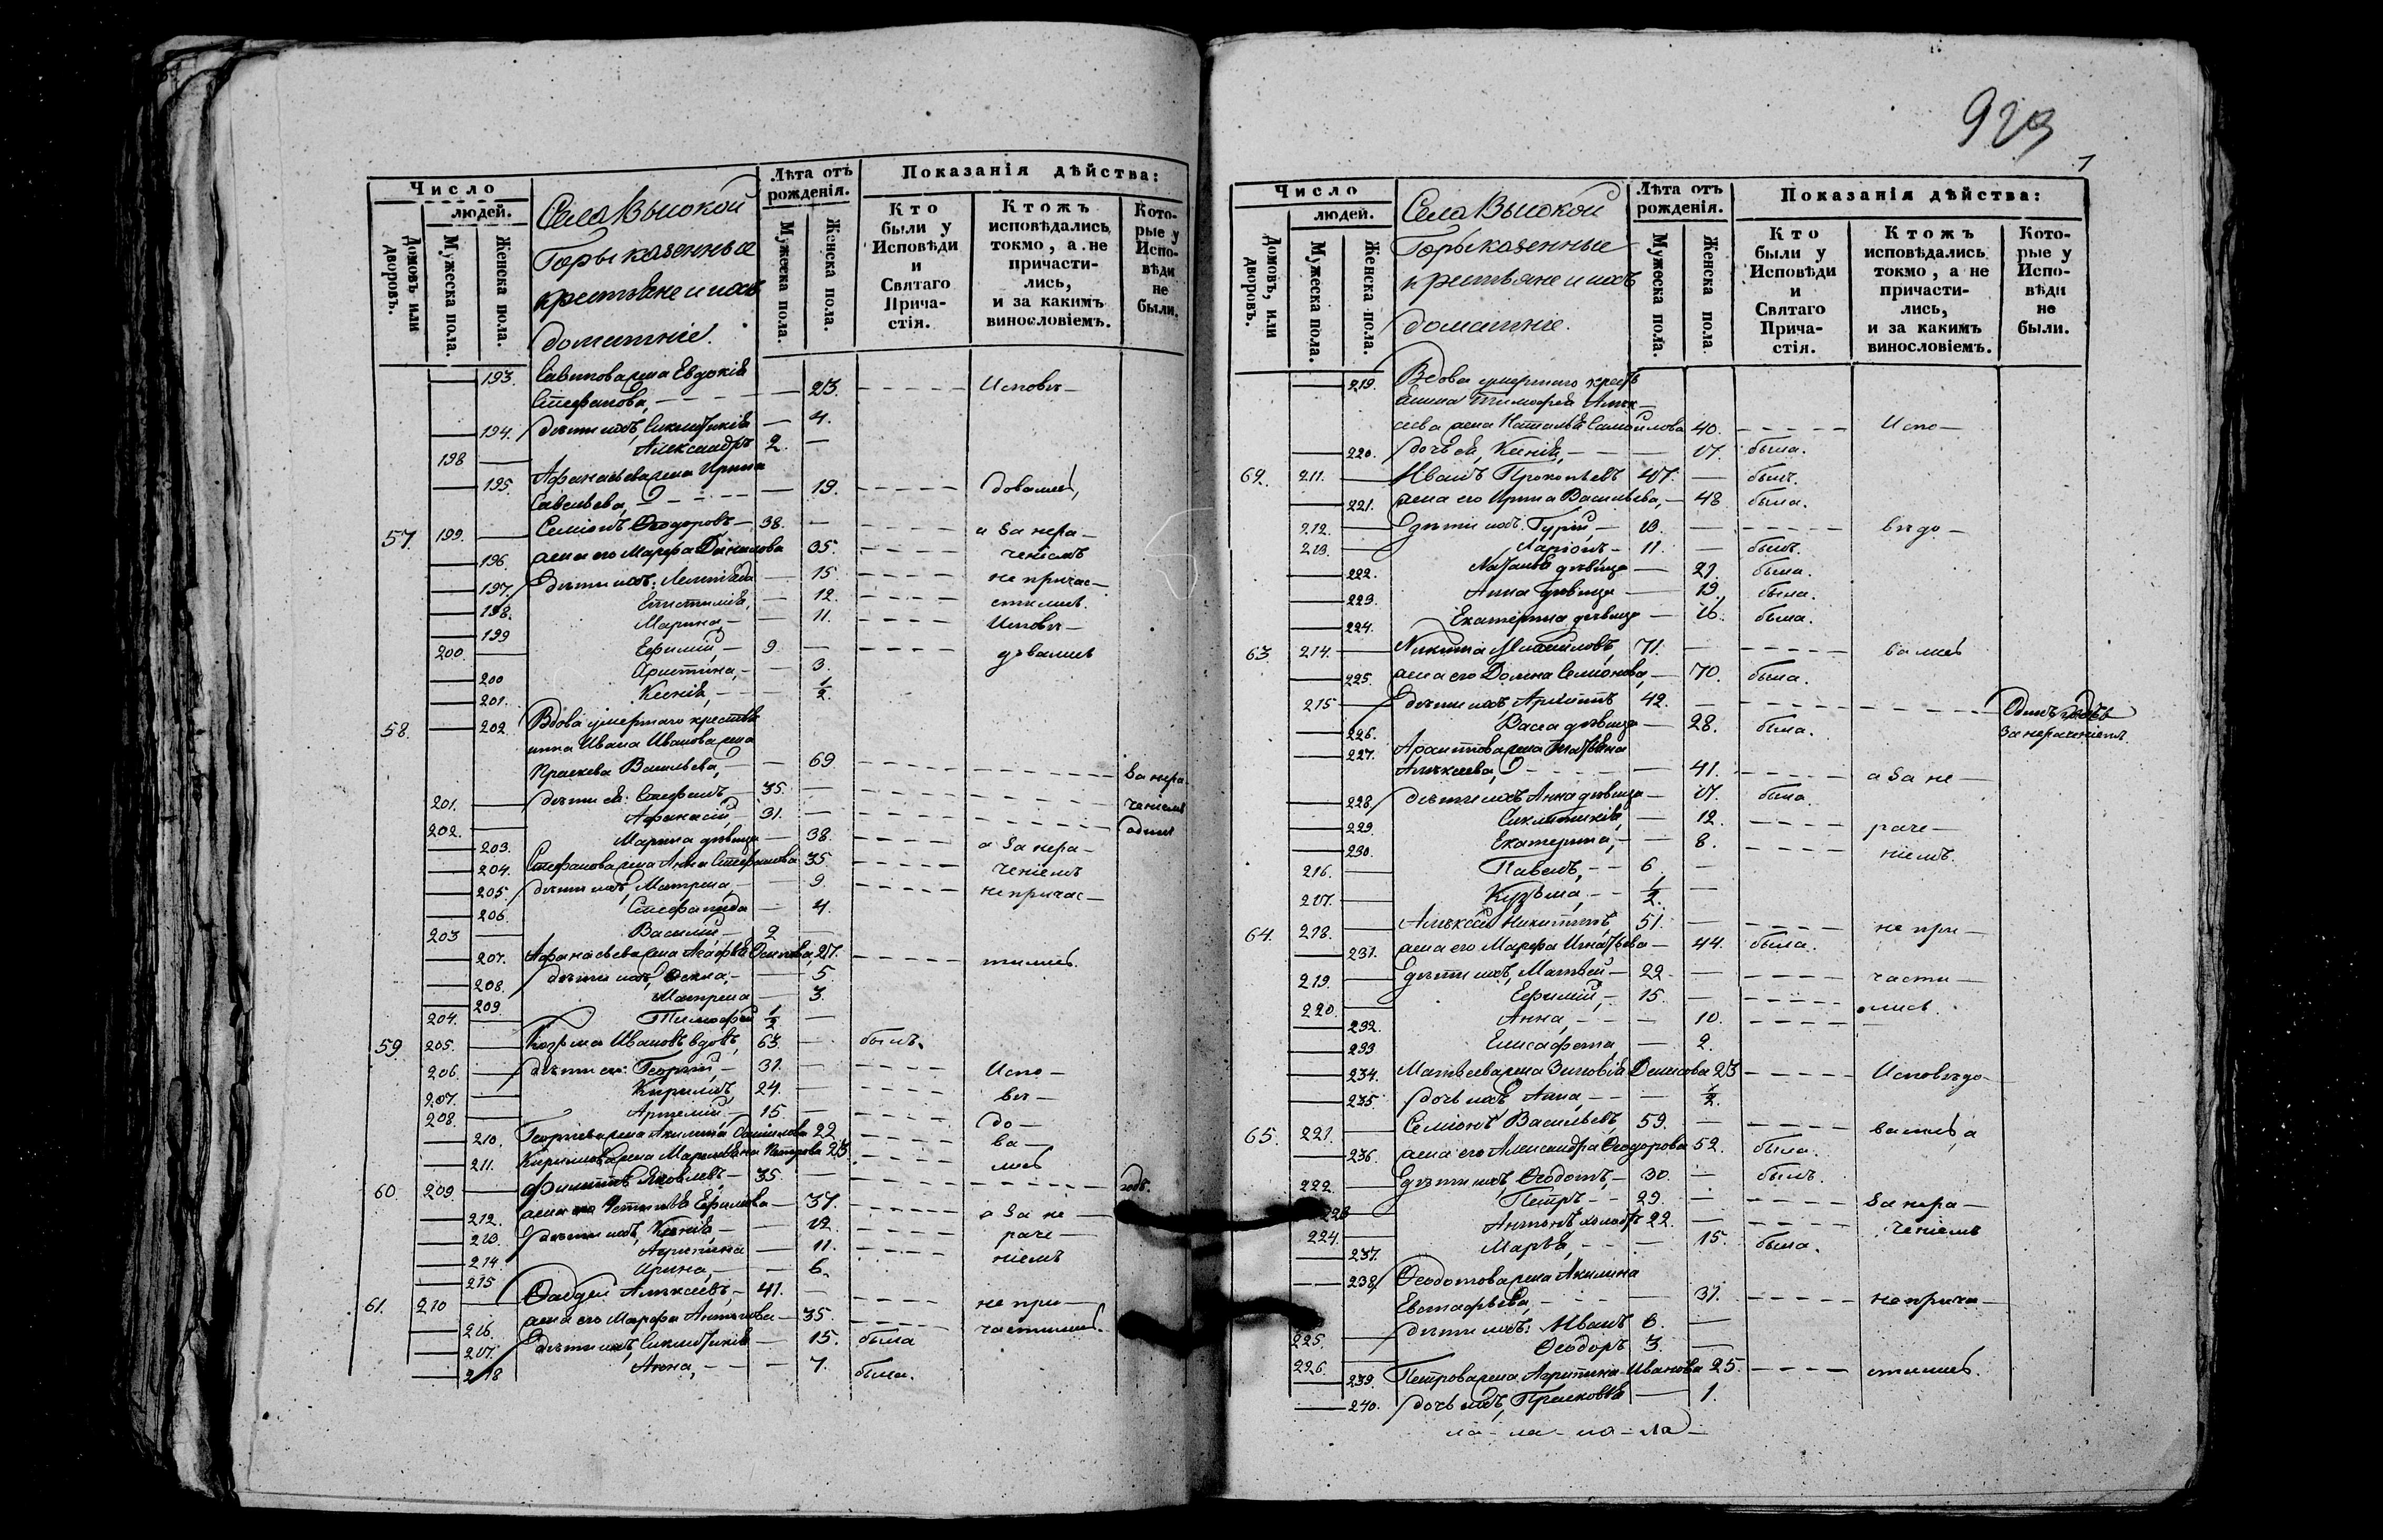 Число
людей.
Домовъ или дворовъ.
Мужеска пола.
Женска пола.
Села Высокой
Горы казенные
крестьяне и ихъ
домашніе.
Лѣта отъ рожденія.
Мужеска пола.
Женска пола.
Показанія дѣйства:
Кто были у Исповѣди и Святаго Прича-стія.
Ктожъ исповѣдались токмо, а не причасти-лись, и за какимъ винословіемъ.
Кото-рые у Испо-вѣди не были.
193. Евдокія
Стефанова, 23. Исповѣ-
194. дѣти ихъ, Синклитикія 4.
198 Александръ 2.
195. Афанасьева жена Ирина
Савельева, 19. довались,
57. 199. Семіонъ Ѳеодоровъ 38. а за нера-
196. жена его Марфа Данилова 35. ченіемъ
197. дѣти ихъ: 15. не причас-
198. Епистимія, 12. стились.
199 Марина, 11. Исповѣ-
200. Ефимій, 9. довались
200 Христина, 3.
201. Ксенія, 1/2.
58. 202 Вдова умершаго крестья
нина Ивана Иванова жена
Праскева Васильева, 69 за нера
201. дѣти ея: Стефанъ 35. ченіемъ
202. Афанасій, 31. одинъ
203. Марина дѣвица 38. а за нера-
204. Стефанова жена Анна Стефанова 35. ченіемъ
205. дѣти ихъ, Матрена, 9. не причас-
206. Стефанида 4.
203 Василій 2
207. Афанасьева жена Агафья Осипова, 27. тились.
208. дѣти ихъ, 5
209. Матрена 3.
204. Тимофей 1/2
59. 205. Козьма Ивановъ вдовъ, 63. былъ.
206. дѣти его: Георгій, 31. Испо-
207. Кириллъ, 24. вѣ-
208. Артемій, 15. до-
210. Георгіева жена Акилина 22. ва-
211. Кириллова жена Петрова 23. лись
60. 209 Филиппъ Яковлевъ 35. годъ.
212. жена его Устинья Ефимова 37. а за не
213. дѣти ихъ, Ксенія, 12. раче-
214. Агрипина 11. ніемъ
215 Ирина, 6.
61. 210 Фаддей Алексѣевъ, 41. не при-
216. жена его Марфа 35. частились.
217. дѣти ихъ, Синклитикія 15. была
218 Анна, 7. была.
Число
людей.
Домовъ, или дворовъ.
Мужеска пола.
Женска пола.
Села Высокой
Горы казенные
крестьяне и ихъ
домашніе.
Лѣта отъ рожденія.
Мужеска пола.
Женска пола.
Показанія дѣйства:
Кто были у Исповѣди и Святаго Прича-стія.
Ктожъ исповѣдались токмо, а не причасти-лись, и за какимъ винословіемъ.
Кото-рые у Испо-вѣди не были.
219. Вдова умершаго кресть
янина Тимофея Алек-
сѣева жена Наталья Самойлова 40. Испо-
220. дочь ея, Ксенія, 17. была.
62. 211. Иванъ Прокопьевъ 47. былъ.
221. жена его Ирина Васильева, 48 была.
212. дѣти ихъ: Гурій, 13. вѣдо-
213. Ларіонъ 11. былъ.
222. Наталья дѣвица 21. была.
223. Анна дѣвица 19. была.
224. Екатерина дѣвица 16. была.
63. 214. Никита Михайловъ, 71. вались
225. жена его Домна Семіонова, 70. была.
215 дѣти ихъ 42. Одинъ годъ
226. Васса дѣвица 28. была. за нераченіемъ.
227. жена Татьяна
Алексѣева, 41. а за не-
228. дѣти ихъ Анна дѣвица 17. была.
229. Синклитикія, 12. раче-
230. Екатерина, 8. ніемъ.
216. Павелъ, 6
217. Кузьма, 1/2.
64. 218. Алексѣй Никитинъ, 51. не при-
231. жена его Марфа Игнатьева 44. была.
219. дѣти ихъ, Матвей 22. части-
220. Ефимій, 15. лись.
232. Анна, 10.
233 Елисафета, 2.
234. Матвеева жена Зиновія Денисова 23 Исповѣдо-
235. дочь ихъ, Анна, 1/2.
65. 221. Семіонъ Васильевъ, 59. вались, а
236. жена его Александра Ѳеодорова 52. была.
222. дѣти ихъ, Ѳеодотъ, 30. былъ.
223 Петръ 29. за нера-
224. Антонъ холостъ 22. ченіемъ
237. Марья, 15. была.
238. Ѳеодотова жена Акилина
Евстафьева, 31. не прича-
225. дѣти ихъ: Иванъ 6.
226. Ѳеодоръ 3.
239. Петрова жена Агрипина Иванова 25. стились.
240. дочь ихъ, Прасковья 1.